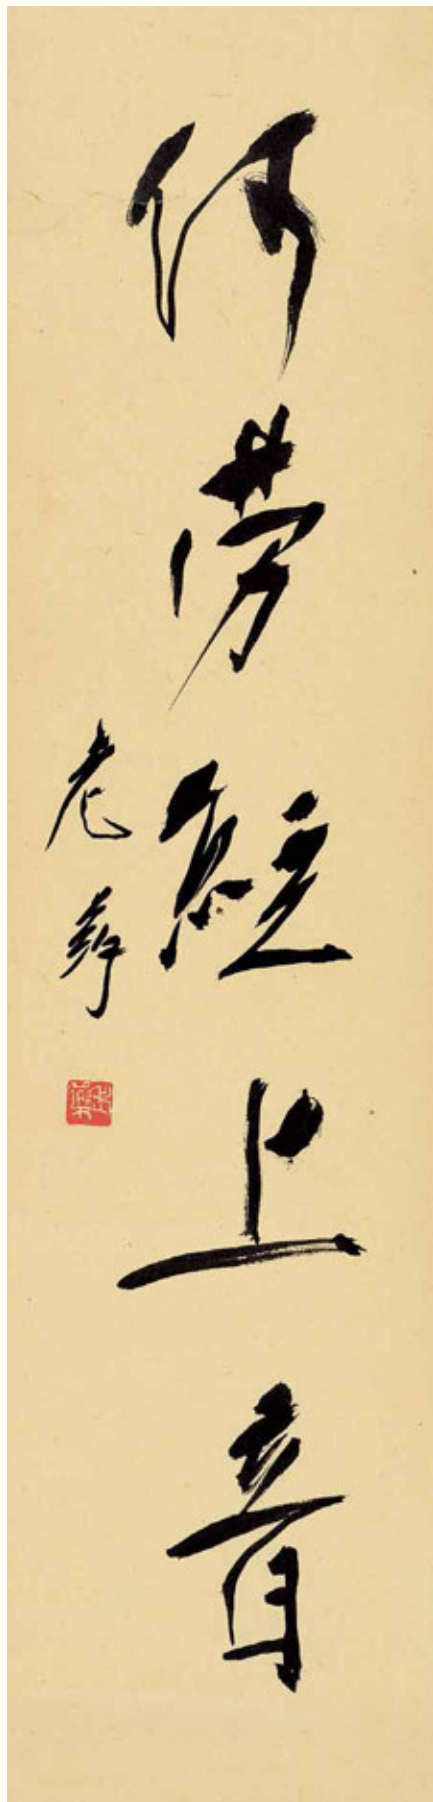 何勞絃上音
老